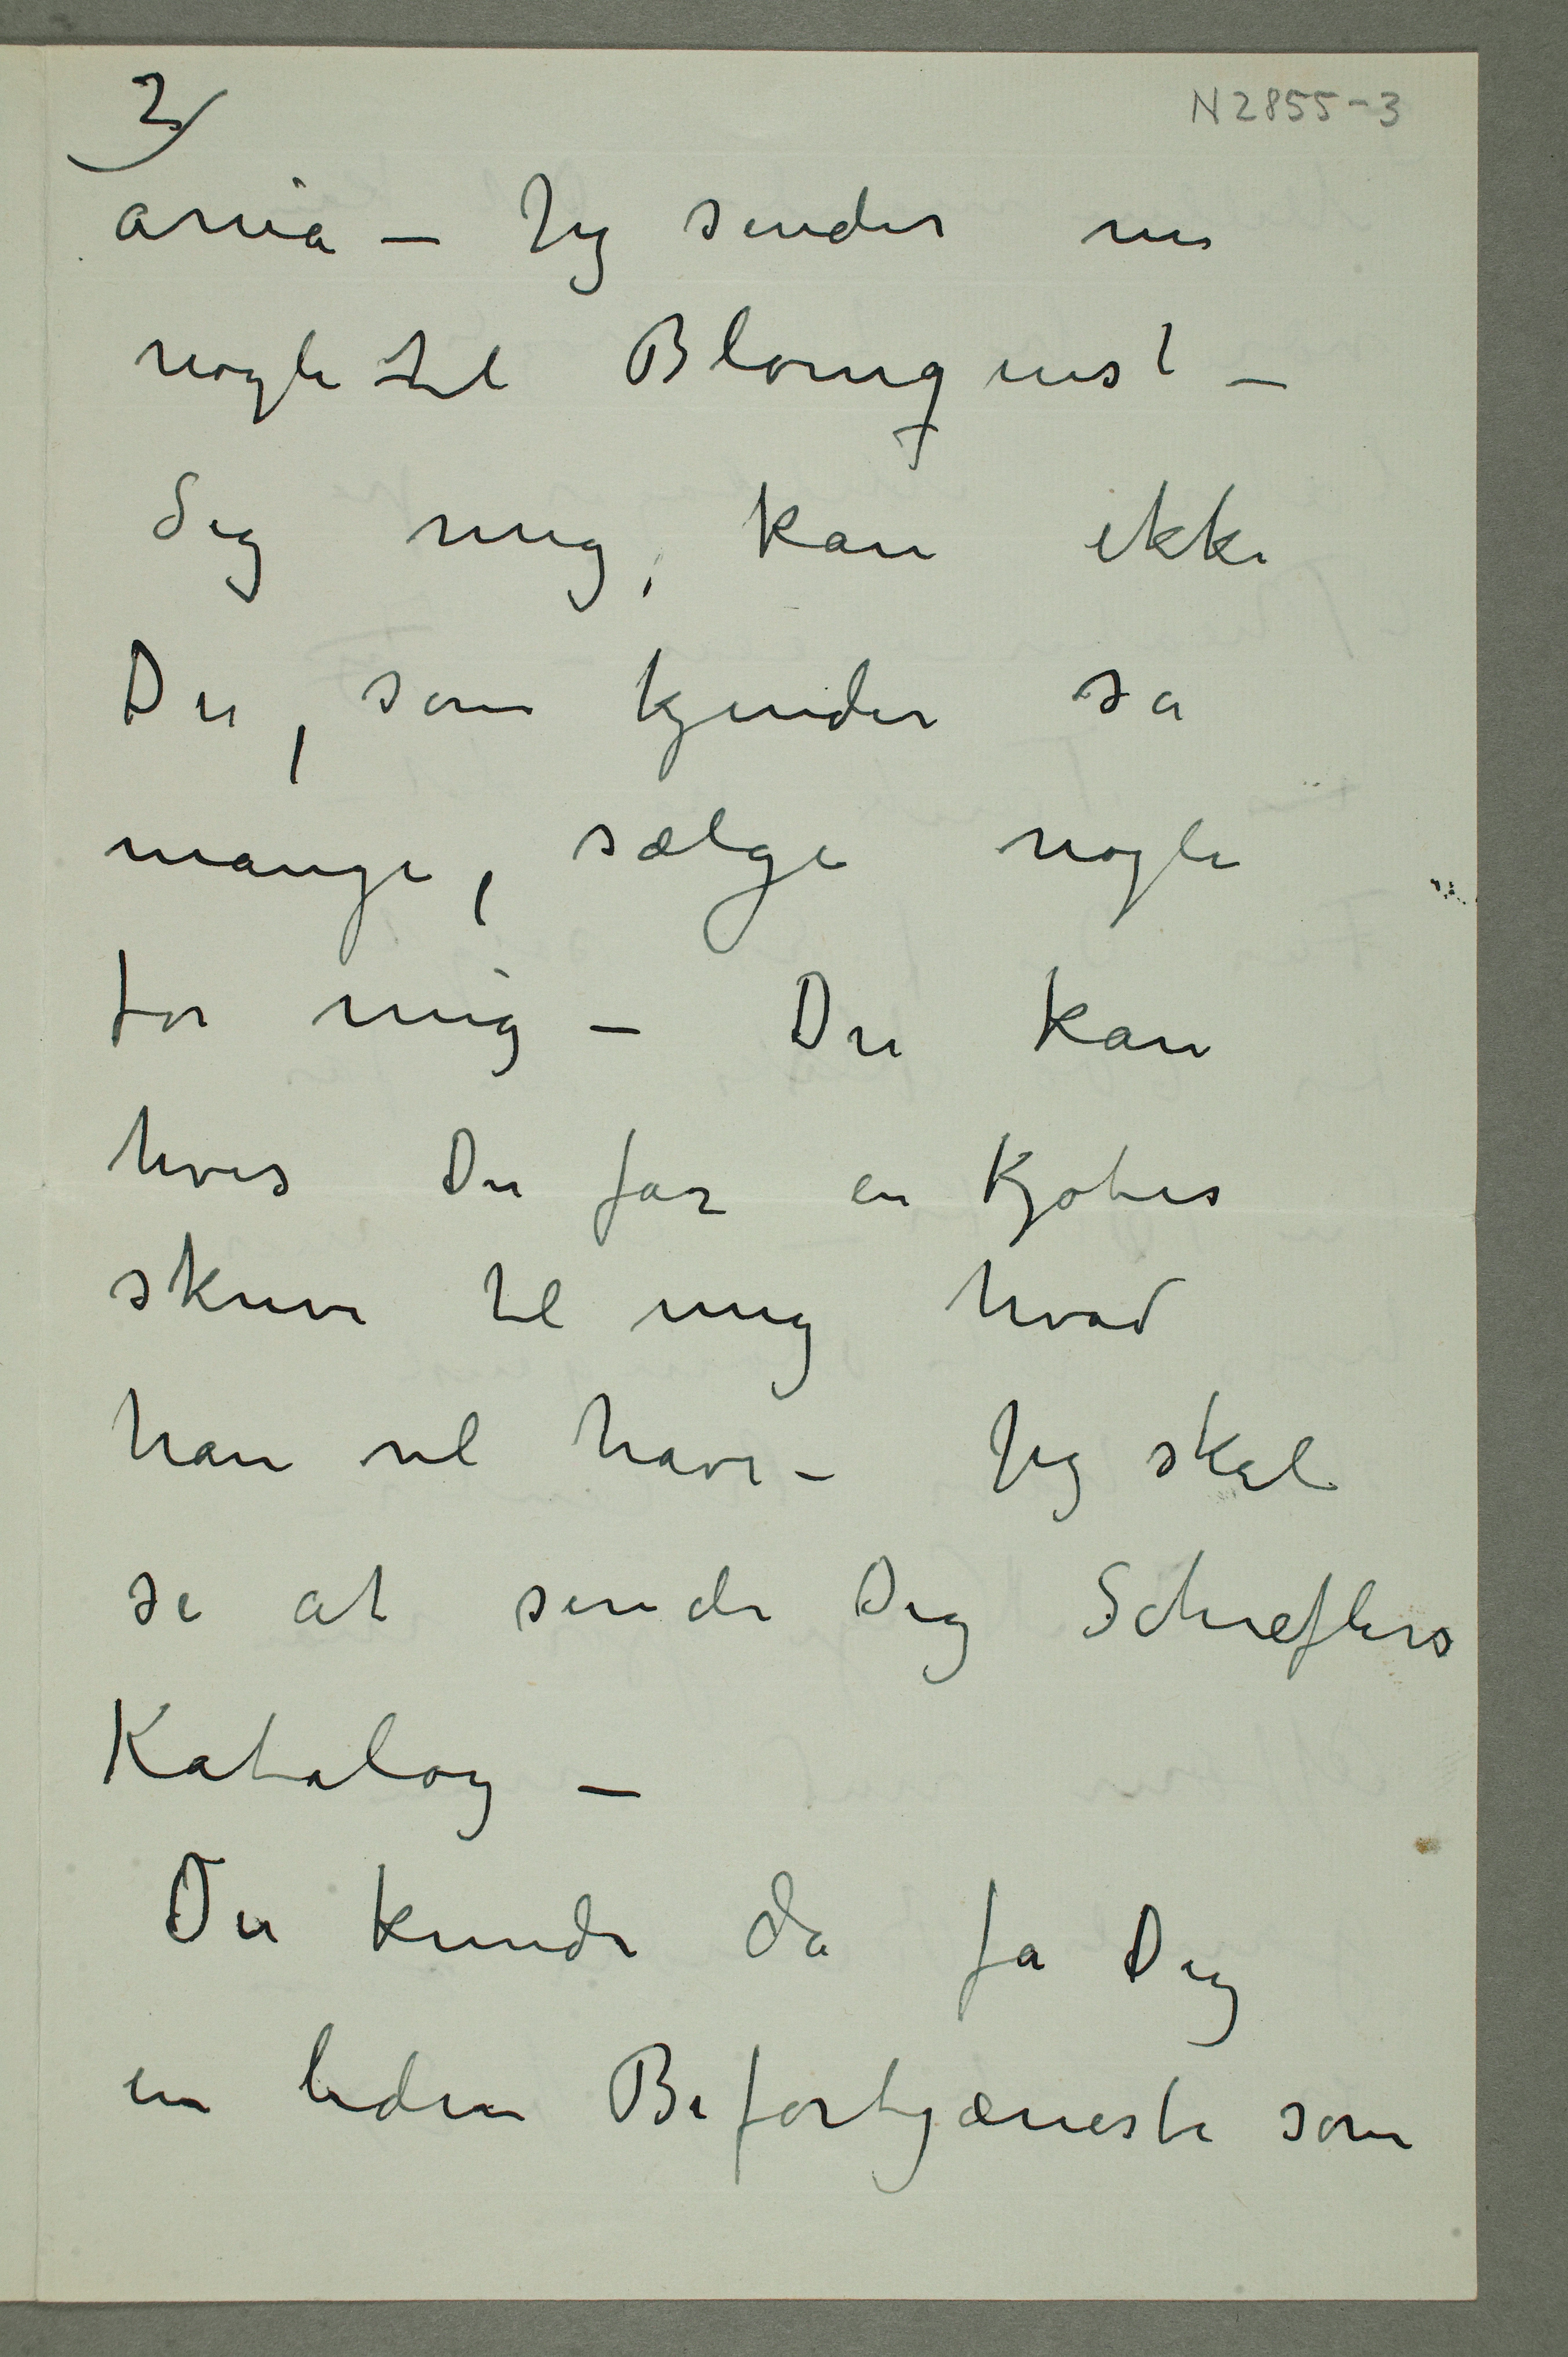 3/
N 2855-3
ania – Jeg sender nu
nogle til Blomqvist –
Sig mig, kan ikke
Du, som kjender sa
mange, sælge nogle
for mig – Du kan
hvis Du far en Kjøber
skrive til mig hvad
han vil have – Jeg skal
se at sende Dig Schieflers
Katalog –
Du kunde da fa Dig
en liden Bifortjæneste som